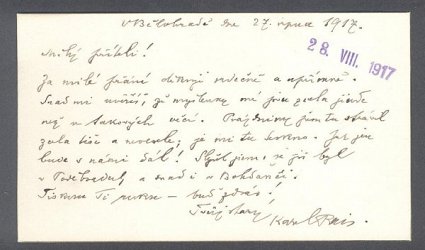 V Bělohradě dne 27. srpna 1917.
28. VIII. 1917
Milý příteli!
Za milé přání děkuji srdečně a upřímně.
Snad mi uvěříš, že myšlenky mé jsou zcela jinde
než u takových věcí. Prázdniny jsem tu strávil
zcela tiše a nevesele; je mi tu teskno. Jak jen
bude s námi dál! Slyšel jsem, že jsi byl
v Poděbradech, a snad i v Bohdanči.
Tisknu Ti ruku – buď zdráv!
Tvůj starý
Karel Rais.